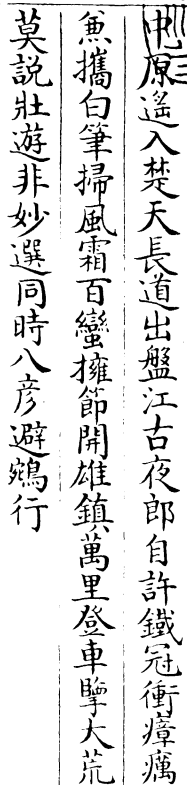 中原遥入楚天長道出盤江古夜郎自許鐵冠衝瘴癘
兼攜白筆掃風霜百蠻擁節開雄鎮萬里登車擥大荒
莫說壯遊非妙選同時八彦避鵷行